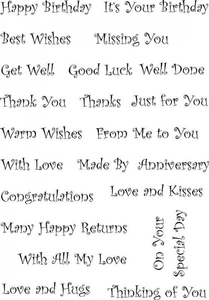 Happy Birthday It's Your Birthday
Best Wishes Missing You
Get Well Good Luck Well Done
Thank You Thanks Just for You
Warm Wishes From Me to You
With Love Made By Anniversary
Congratulations Love and Kisses
Many Happy Returns
With All My Love
On Your
Special Day
Love and Hugs Thinking of You